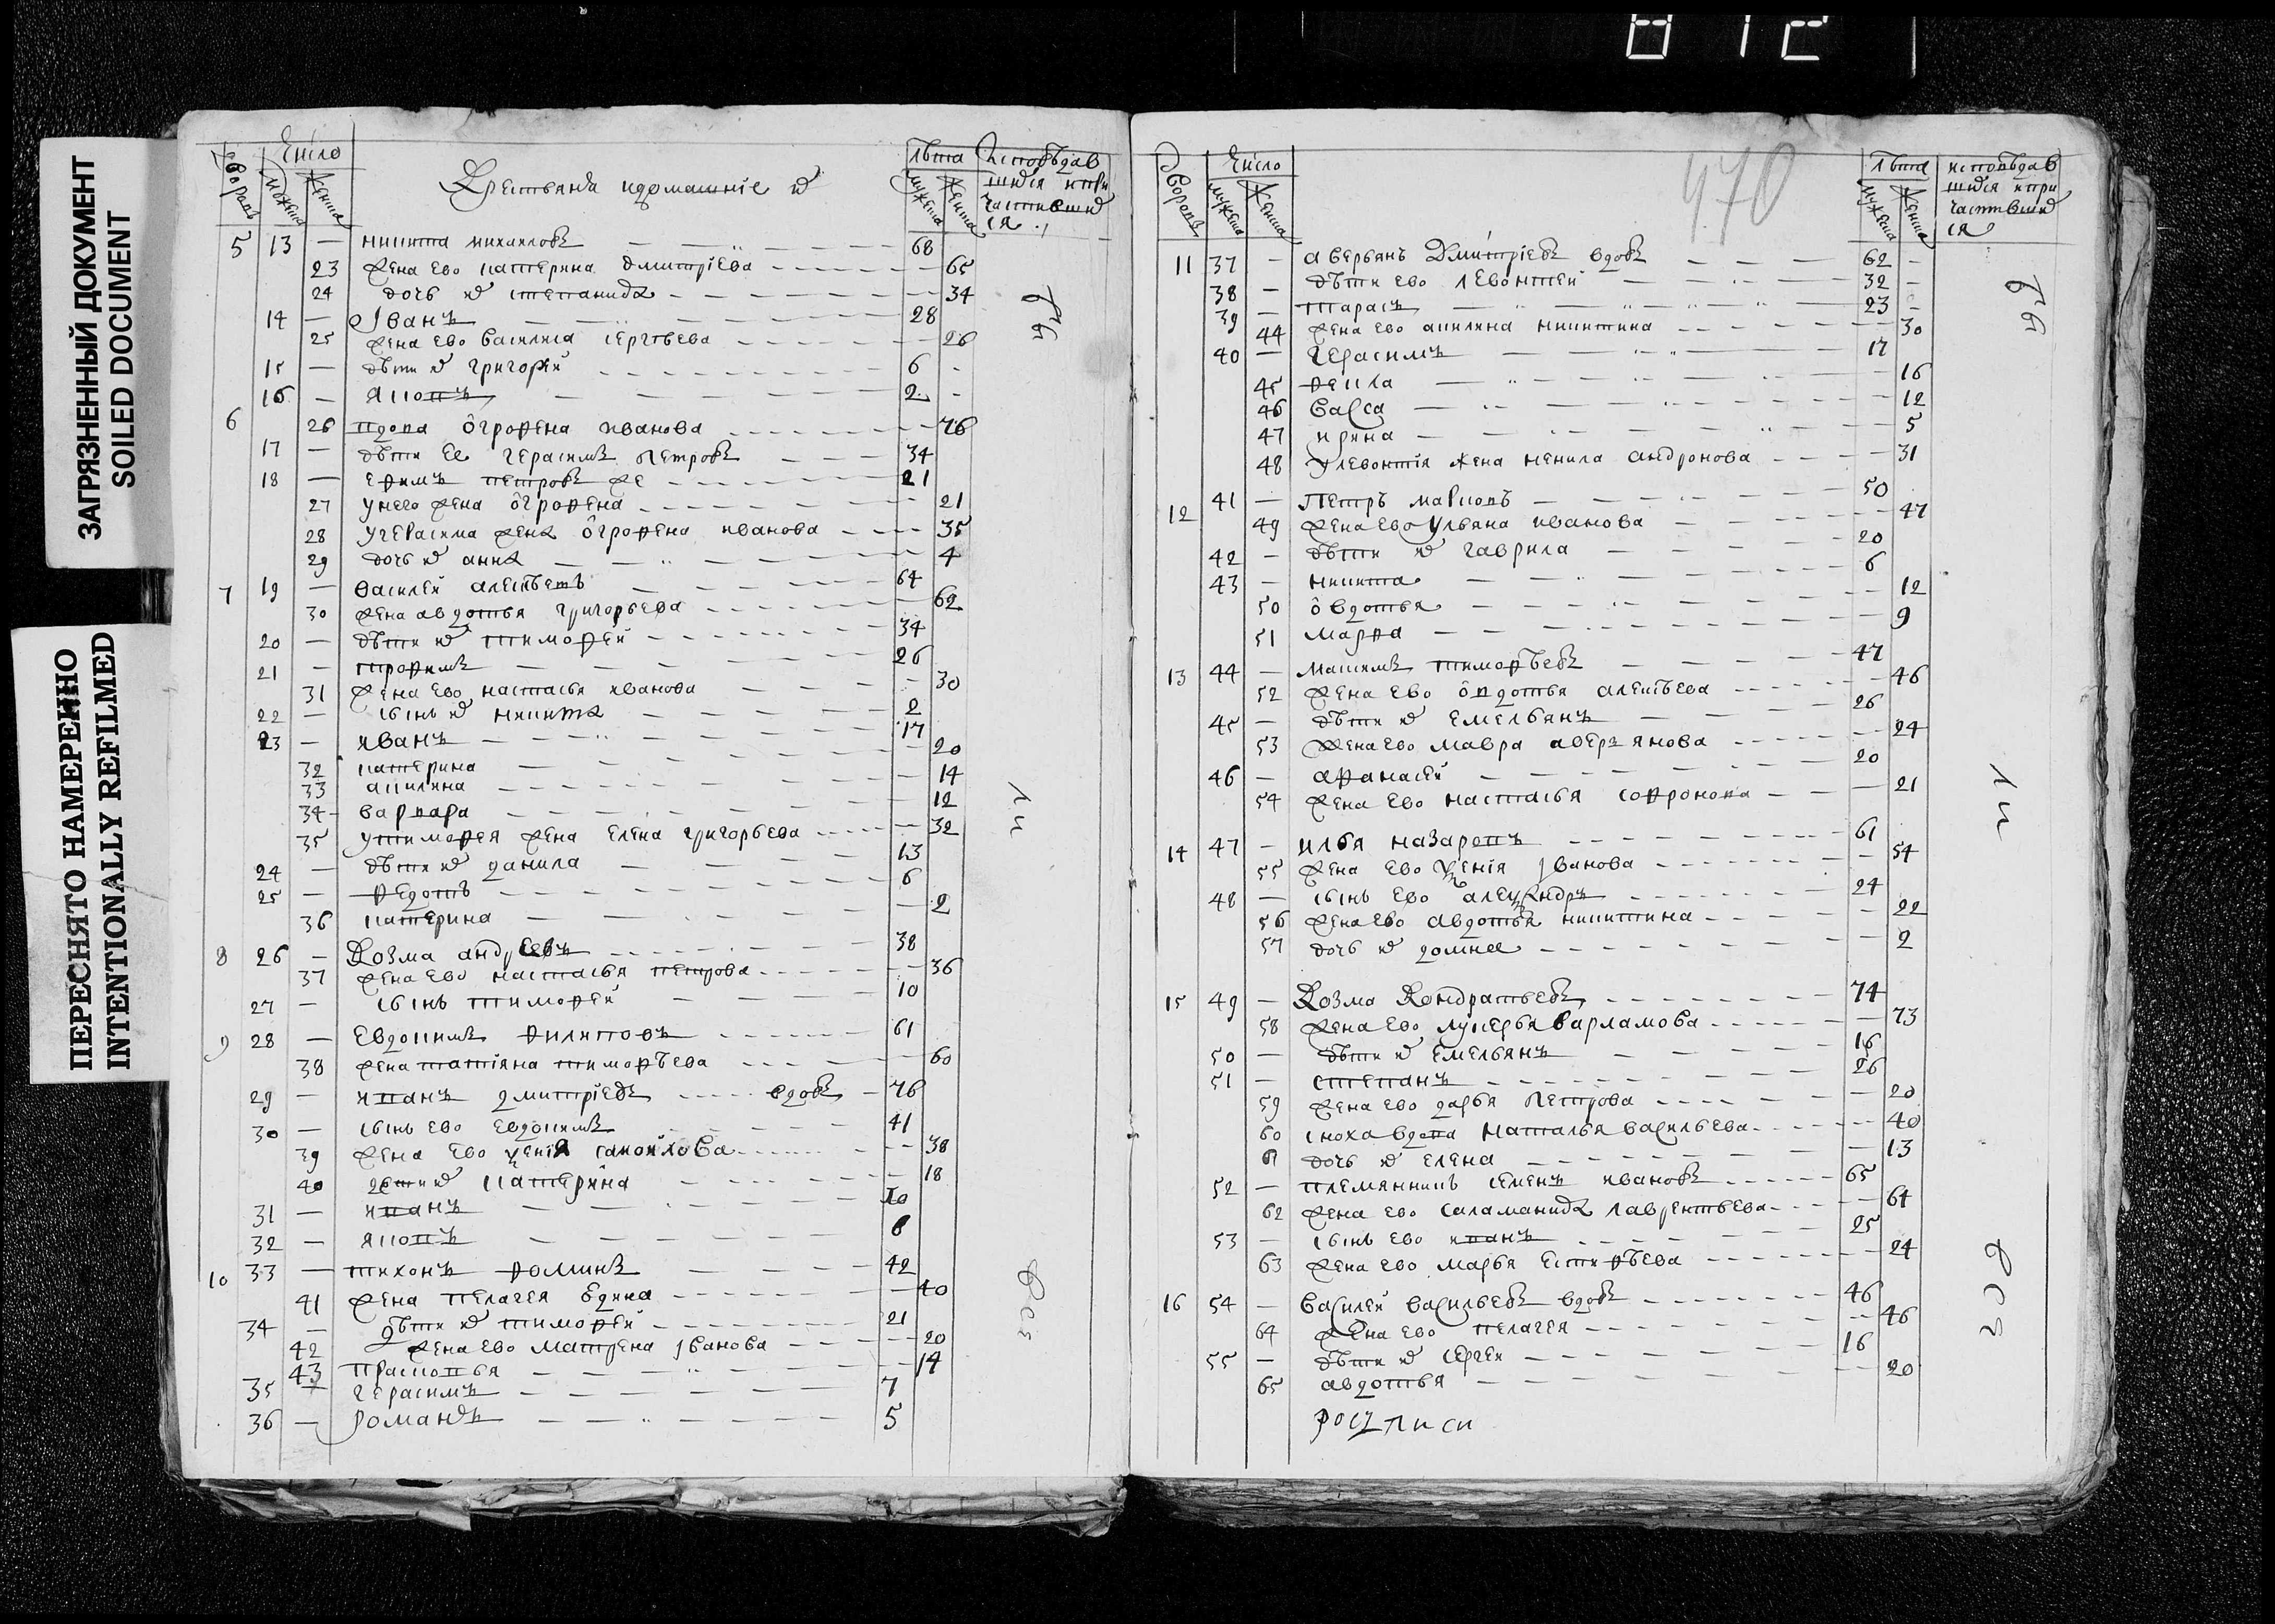 812
ЗАГРЯЗНЕННЫЙ ДОКУМЕНТ
SOILED DOCUMENT
ПЕРЕСНЯТО НАМЕРЕННО
INTENTIONALLY REFILMED
дворовъ Число мужеска женска Крестьяня и домашніе ихъ лѣта мужеска женска исповѣдав
шихся и при
частивших
ся
5 13 — никита михаиловъ 68
23 жена ево катерина дмитріева 65
24 дочь их степанида 34
14 — Іванъ 28
25 жена ево василиса сергѣева 26
15 — дѣти их григорей 6
16 — яковъ 2
6 26 вдова огрофена иванова 76
17 — дѣти ее герасимъ петровъ 34
18 — ефимъ петровъ же 21
27 у него жена огрофена 21
28 у герасима жена огрофена иванова 35
29 дочь их анна 4
7 19 — василей алексѣевъ 64
30 жена авдотья григорьева 62
20 — дѣти их тимофей 34
21 — трофимъ 26
31 жена ево настасья иванова 30
22 — сынъ их никита 2
23 — иванъ 17
32 катерина 20
33 акилина 14
34 варвара 12
35 у тимофея жена елена григорьева 32
24 — дѣти их данила 13
25 — федотъ 6
36 катерина 2
8 26 — Козма андреевъ 38
37 жена ево настасья петрова 36
27 — сынъ тимофей 10
9 28 — Евдокимъ филиповъ 61
38 жена татіяна тимофѣева 60
29 — иванъ дмитріевъ вдовъ 76
30 — сынъ ево евдокимъ 41
39 жена ево ѯенія самоилова 38
40 дѣти их катерина 18
31 — иванъ 10
32 — яковъ 8
10 33 — тихонъ фоминъ 42
41 жена пелагея 40
34 — дѣти их тимофей 21
42 жена ево матрена іванова 20
43 прасковья 14
35 — герасимъ 7
36 — романъ 5
вѣ
ли
воз
470
дворовъ Число мужеска женска лѣта мужеска женска исповѣдав
шихся и при
частивших
ся
11 37 — аверьянъ Дмитріевъ вдовъ 62
38 — дѣти ево левонтей 32
39 — тарасъ 23
44 жена ево акилина никитина 30
40 — герасимъ 17
45 фекла 16
46 васса 12
47 ирина 5
48 у левонтія жена ненила андронова 31
12 41 — Петръ марковъ 50
49 жена ево ульяна иванова 47
42 — дѣти их гаврила 20
43 — никита 6
50 овдотья 12
51 марфа 9
13 44 — максимъ тимофѣевъ 47
52 жена ево овдотья алексѣева 46
45 — дѣти их емельянъ 26
53 жена ево мавра аверьянова 24
46 — афанасей 20
54 жена ево настасья софронова 21
14 47 — илья назаровъ 61
55 жена ево ѯенія іванова 54
48 — сынъ ево алеѯандръ 24
56 жена ево авдотья никитина 22
57 дочь их домна 2
15 49 — Козма Кондратьевъ 74
58 жена ево лукерья варламова 73
50 — дѣти их емельянъ 16
51 — степанъ 26
59 жена ево дарья петрова 20
60 сноха вдова наталья васильева 40
61 дочь их елена 13
52 — племянникъ семенъ ивановъ 65
62 жена ево саламанида лаврентьева 64
53 — сынъ ево иванъ 25
63 жена ево марья естифѣева 24
16 54 — василей васильевъ вдовъ 46
64 жена ево пелагея 46
55 — дѣти их сергеи 16
65 авдотья 20
росписи
вѣ
ли